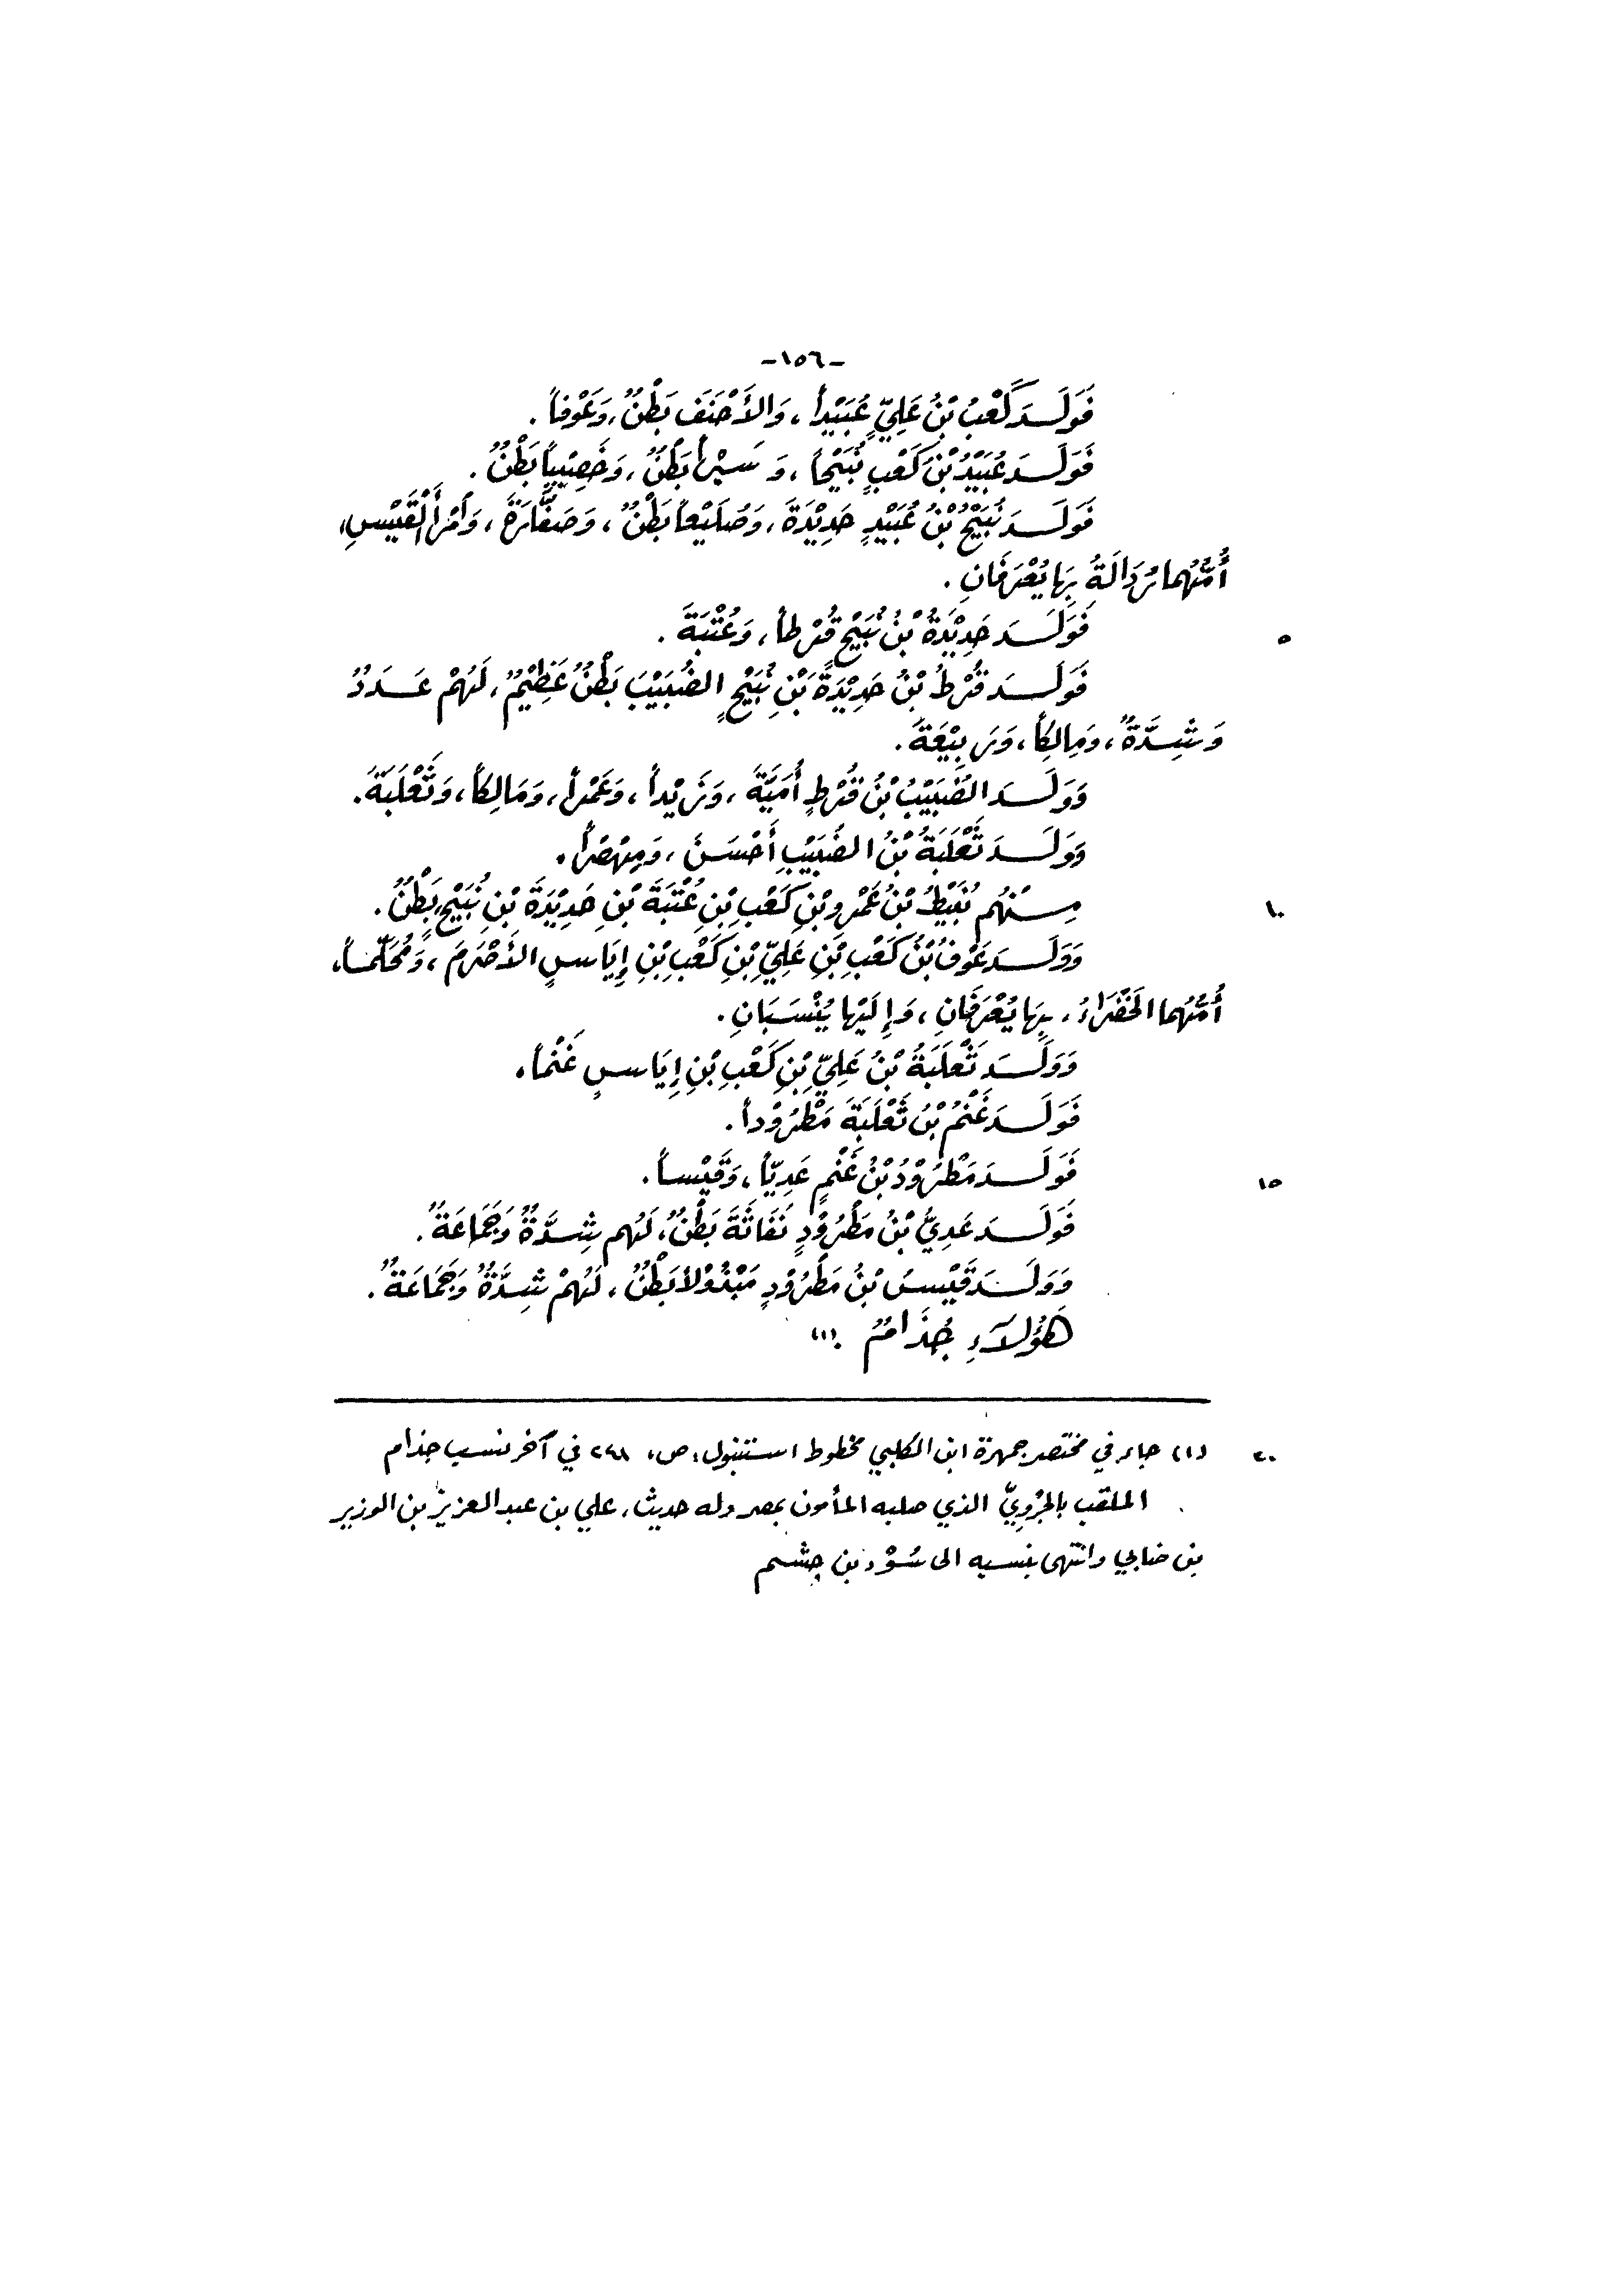 -١٥٦-
فَوَلَدَ كَعْبُ بْنُ عَلِيٍّ عُبَيْداً، وَالأَحْنَفَ بَطْنٌ، وَعَوْفاً.
فَوَلَدَ عُبَيْدُ بْنُ كَعْبٍ نُبَيْحاً، وَسَيْراً بَطْنٌ، وَخَصِيْباً بَطْنٌ.
فَوَلَدَ نُبَيْحُ بْنُ عُبَيْدٍ حَدِيْدَةَ، وَصُلَيْعاً بَطْنٌ، وَصَفَّارَةَ، وَامْرَأَ الْقَيْسِ،
أُمُّهُما رَدَالَةُ بِهَا يُعْرَفَانِ.
فَوَلَدَ حَدِيْدَةُ بْنُ نُبَيْحٍ قُرْطاً، وَعُتْبَةَ. ٥
فَوَلَدَ قُرْطُ بْنُ حَدِيْدَةَ بْنِ نُبَيْحٍ الضُّبَيْبَ بَطْنٌ عَظِيْمٌ، لَهُمْ عَدَدٌ
وَشِدَّةٌ، وَمَالِكاً، وَرَبِيْعَةَ.
وَوَلَدَ الضُّبَيْبُ بْنُ قُرْطٍ أُمَيَّةَ، وَزَيْداً، وَعَمْراً، وَمَالِكاً، وَثَعْلَبَةَ.
وَوَلَدَ ثَعْلَبَةُ بْنُ الضُّبَيْبِ أَحْسَنَ، وَمِهْصَراً.
مِنْهُم نُبَيْطُ بْنُ عَمْرِو بْنِ كَعْبِ بْنِ عُتْبَةَ بْنِ حَدِيْدَةَ بْنِ نُبَيْحٍ بَطْنٌ. ١٠
وَوَلَدَ عَوْفُ بْنُ كَعْبِ بْنِ عَلِيِّ بْنِ كَعْبِ بْنِ إِيَاسٍ الأَصْرَمَ، وَمُحَلَّماً،
أُمُّهُما الخَضْرَاءُ، بِهَا يُعْرَفَانِ، وَإِلَيْها يُنْسَبَانِ.
وَوَلَدَ ثَعْلَبَةُ بْنُ عَلِيِّ بْنِ كَعْبِ بْنِ إِيَاسٍ غَنْماً.
فَوَلَدَ غَنْمُ بْنُ ثَعْلَبَةَ مَطْرُوْداً.
فَوَلَدَ مَطْرُوْدُ بْنُ غَنْمٍ عَدِيّاً، وَقَيْساً. ١٥
فَوَلَدَ عَدِيُّ بْنُ مَطْرُوْدٍ نَفَاثَةَ بَطْنٌ، لَهُم شِدَّةٌ وَجَمَاعَةٌ.
وَوَلَدَ قَيْسُ بْنُ مَطْرُوْدٍ مَبْذُوْلاً بَطْنٌ، لَهُمْ شِدَّةٌ وَجَمَاعَةٌ.
هَؤُلَاءِ جُذَامٌ. (١)
(١) جاء في مختصر جمهرة ابن الكلبي مخطوط استنبول، ص، ٢٤٨ في آخر نسب جذام ٢٠
الملقب بالجَرْوِيِّ الذي صلبه المأمون بمصر وله حديث، علي بن عبد العزيز بن الوزير
بن ضابي وانتهى بنسبه الى سُوْد بن جشم